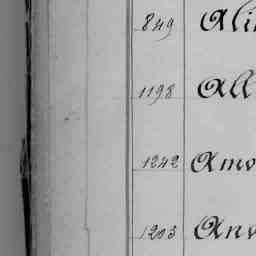 849 Ali
1198 All
1242 Amo
1203 Ano